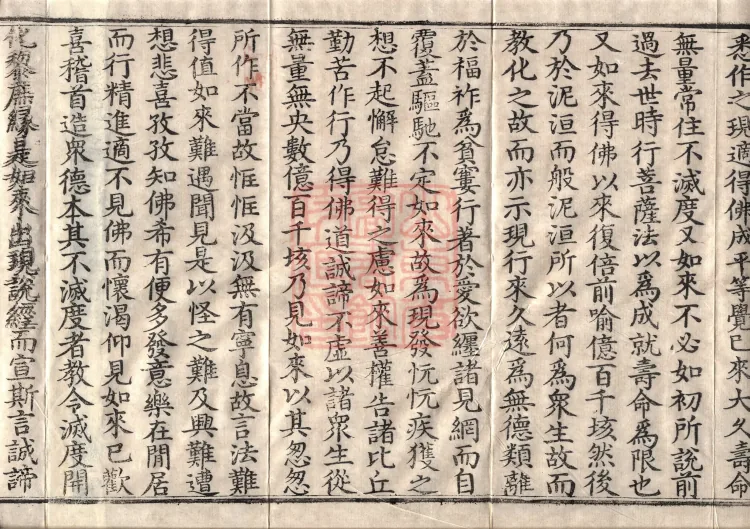 悉作之現適得佛成平等覺已來大久壽命
無量常住不滅度又如來不必如初所說前
過去世時行菩薩法以爲成就壽命爲限也
又如來得佛以來復倍前喻億百千垓然後
乃於泥洹而般泥洹所以者何爲衆生故而
教化之故而亦示現行來久遠爲無德類離
於福祚爲貧寠行著於愛欲纏諸見網而自
覆蓋驅馳不定如來故爲現發忨忨疾獲之
想不起懈怠難得之慮如來善權告諸比丘
勤苦作行乃得佛道誠諦不虛以諸衆生從
無量無央數億百千垓乃見如來以其忽忽
所作不當故恇恇汲汲無有寧息故言法難
得值如來難遇聞見是以怪之難及興難遭
想悲喜孜孜知佛希有便多發意樂在閒居
而行精進適不見佛而懷渴仰見如來已歡
喜稽首造衆德本其不滅度者教令滅度開
化黎庶緣是如來出現說經而宣斯言誠諦